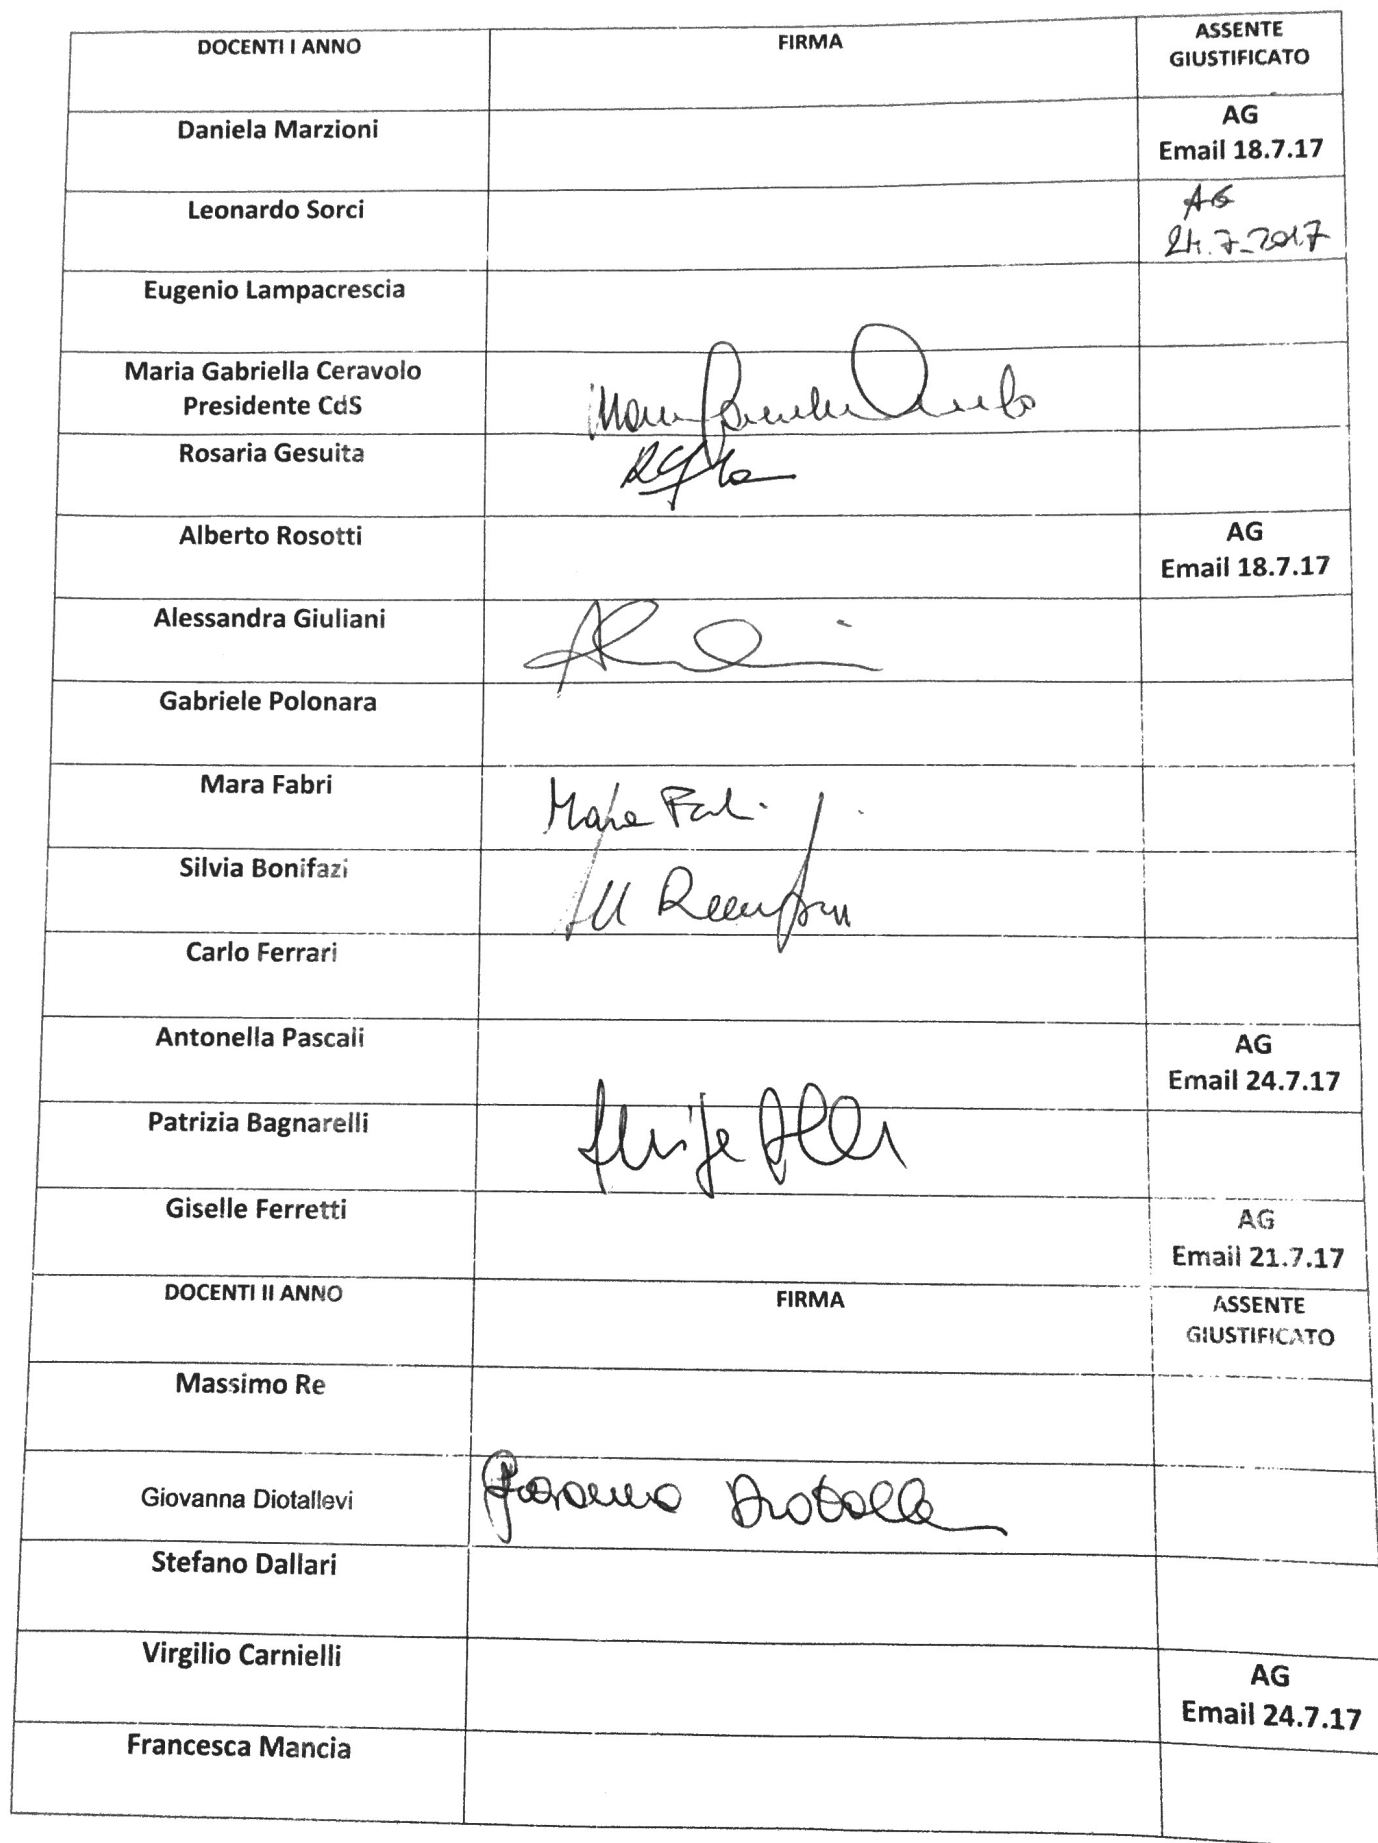 DOCENTI I ANNO FIRMA ASSENTE
GIUSTIFICATO
Daniela Marzioni AG
Email 18.7.17
Leonardo Sorci AG
24.7.2017
Eugenio Lampacrescia
Maria Gabriella Ceravolo
Presidente CdS
Rosaria Gesuita
Alberto Rosotti AG
Email 18.7.17
Alessandra Giuliani
Gabriele Polonara
Mara Fabri Mara
Silvia Bonifazi
Carlo Ferrari
Antonella Pascali AG
Email 24.7.17
Patrizia Bagnarelli
Giselle Ferretti AG
Email 21.7.17
DOCENTI II ANNO FIRMA ASSENTE
GIUSTIFICATO
Massimo Re
Giovanna Diotallevi Giovanna
Stefano Dallari
Virgilio Carnielli AG
Email 24.7.17
Francesca Mancia